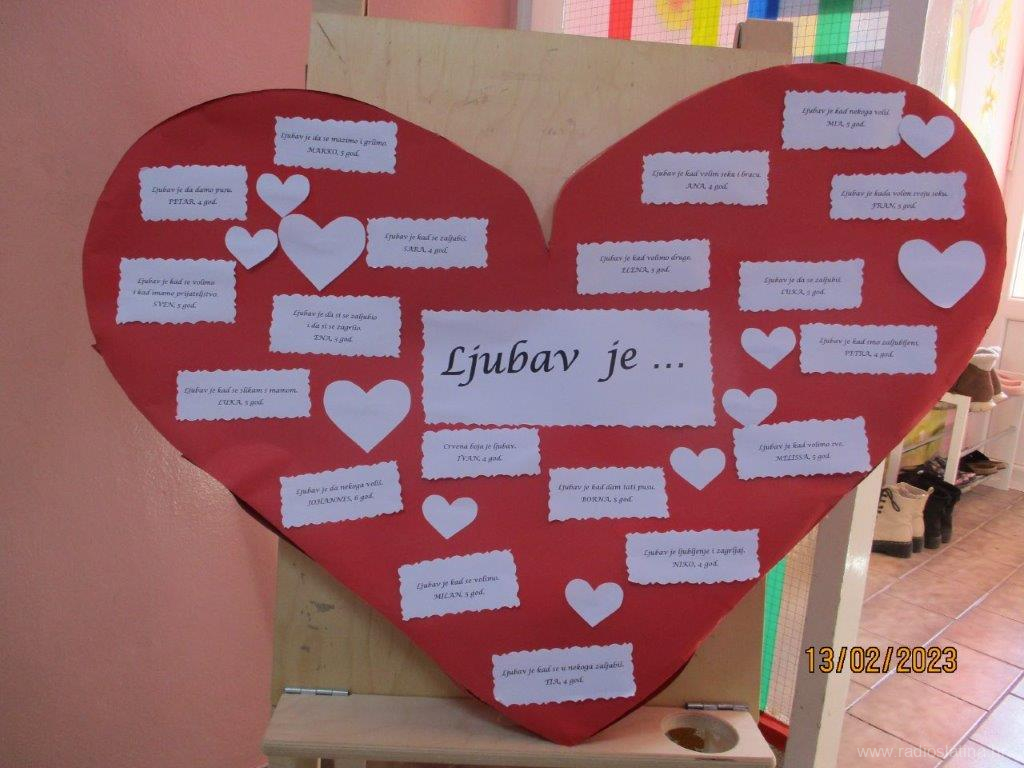 Ljubav je da se mazimo i grlimo.
MARKO, 5 god.
Ljubav je kad nekoga voliš.
MIA, 5 god.
Ljubav je da damo pusu.
PETAR, 4 god.
Ljubav je kad volim seku i bracu.
ANA, 4 god.
Ljubav je kada volim svoju seku.
FRAN, 5 god.
Ljubav je kad se zaljubiš.
SARA, 4 god.
Ljubav je kad volimo druge.
ELENA, 5 god.
Ljubav je kad se volimo
i kad imamo prijateljstvo.
SVEN, 5 god.
Ljubav je da se zaljubiš.
LUKA, 5 god.
Ljubav je da si se zaljubio
i da si se zagrlio.
ENA, 5 god.
Ljubav je ...
Ljubav je kad smo zaljubljeni.
PETRA, 4 god.
Ljubav je kad se slikam s mamom.
LUKA, 5 god.
Crvena boja je ljubav.
IVAN, 4 god.
Ljubav je kad volimo sve.
MELISSA, 5 god.
Ljubav je da nekoga voliš.
JOHANNES, 6 god.
Ljubav je kad dam tati pusu.
BORNA, 5 god.
Ljubav je ljubljenje i zagrljaj.
NIKO, 4 god.
Ljubav je kad se volimo.
MILAN, 5 god.
Ljubav je kad se u nekoga zaljubiš.
TIA, 4 god.
13/02/2023
www.radioslatina.hr